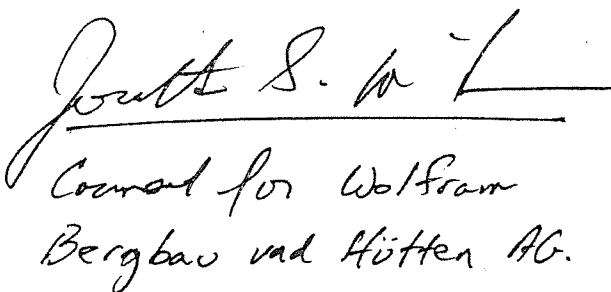 S.
Counsel for Wolfram
Bergbau und Hütten AG.